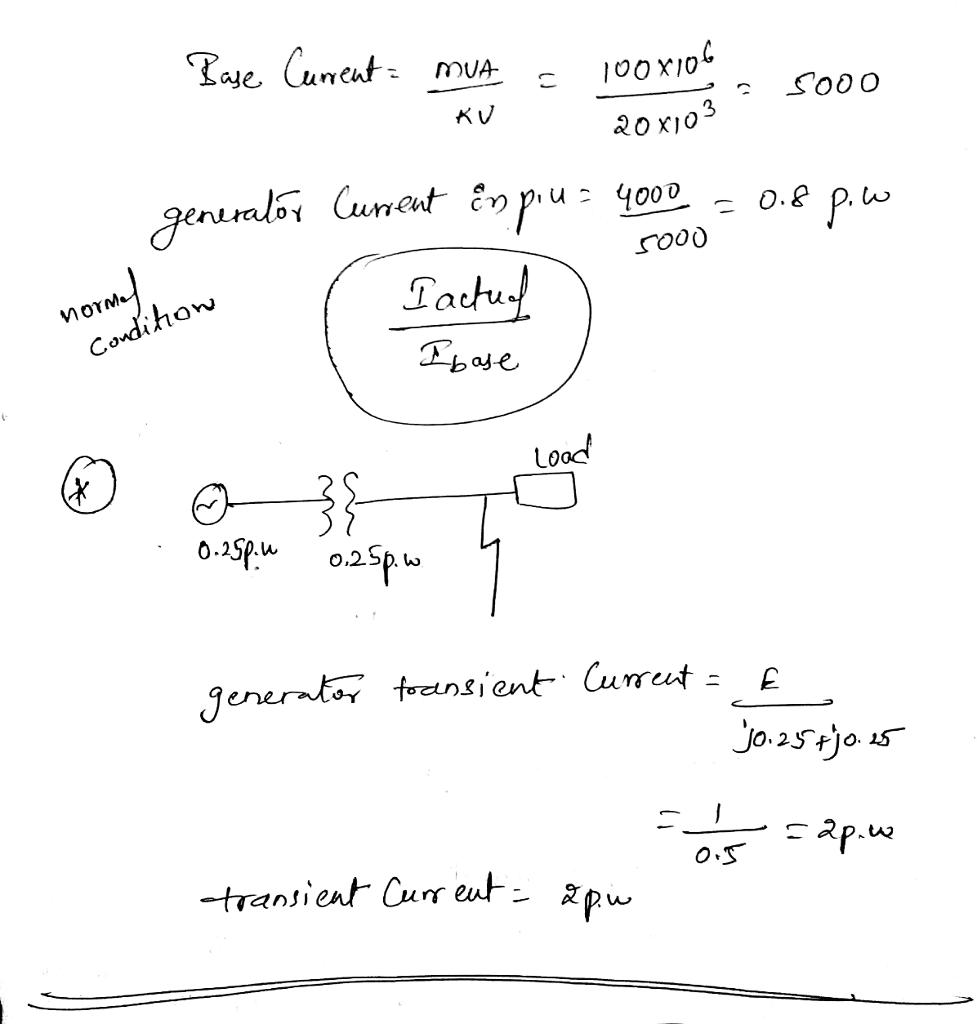 Base Current = MVA / KV = 100×10⁶ / 20×10³ = 5000
generator Current in p.u = 4000 / 5000 = 0.8 p.u
normal condition
Iactual / Ibase
*
Load
~
0.25p.u 0.25p.u
generator transient Current = E / j0.25+j0.25
= 1 / 0.5 = 2p.u
transient Current = 2p.u